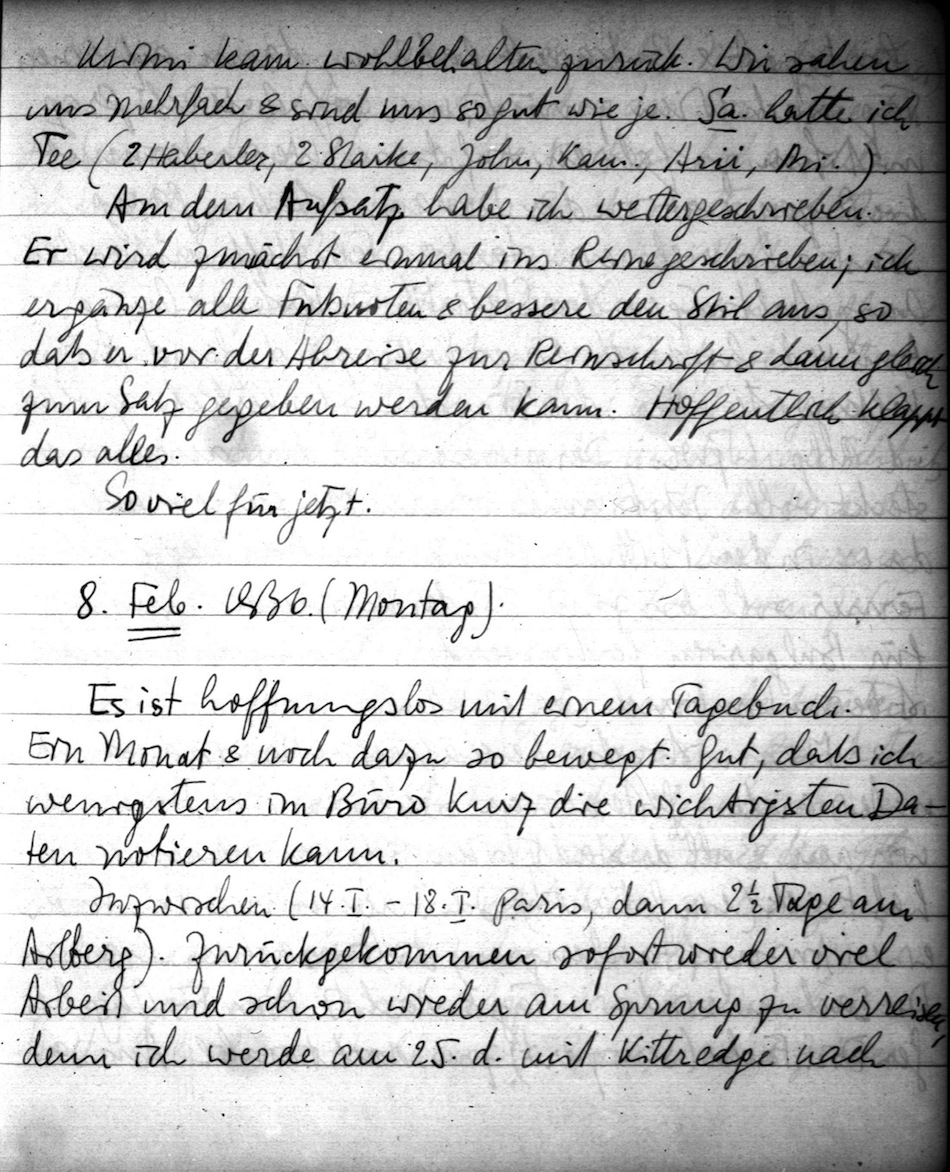 kam wohlbehalten zurück. Wir sahen
uns mehrfach & sind uns so gut wie je. Sa. hatte ich
Tee (2 Haberler, 2 Staike, John, Kam., Arii, Mi.)
An dem Aufsatz habe ich weitergeschrieben.
Er wird zunächst einmal ins Reine geschrieben; ich
ergänze alle Fußnoten & bessere den Stil aus, so
daß er vor der Abreise zur Reinschrift & dann gleich
zum Satz gegeben werden kann. Hoffentlich klappt
das alles.
Soviel für jetzt.
8. Feb. (Montag).
Es ist hoffnungslos mit einem Tagebuch.
Ein Monat & noch dazu so bewegt. Gut, daß ich
wenigstens im Büro kurz die wichtigsten Da-
ten notieren kann.
Inzwischen (14.I. - 18.I. Paris, dann 2½ Tage am
Arlberg). Zurückgekommen sofort wieder viel
Arbeit und schon wieder am Sprung zu verreisen,
denn ich werde am 25. d. mit Kittredge nach